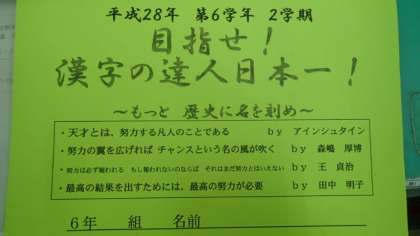 平成28年 第6学年 2学期
目指せ！
漢字の達人日本一！
～もっと 歴史に名を刻め～
・天才とは、努力する凡人のことである by アインシュタイン
・努力の翼を広げれば チャンスという名の風が吹く by 森嶋 厚博
・努力は必ず報われる もし報われないのならば それはまだ努力とはいえない by 王 貞治
・最高の結果を出すためには、最高の努力が必要 by 田中 明子
6年 組 名前